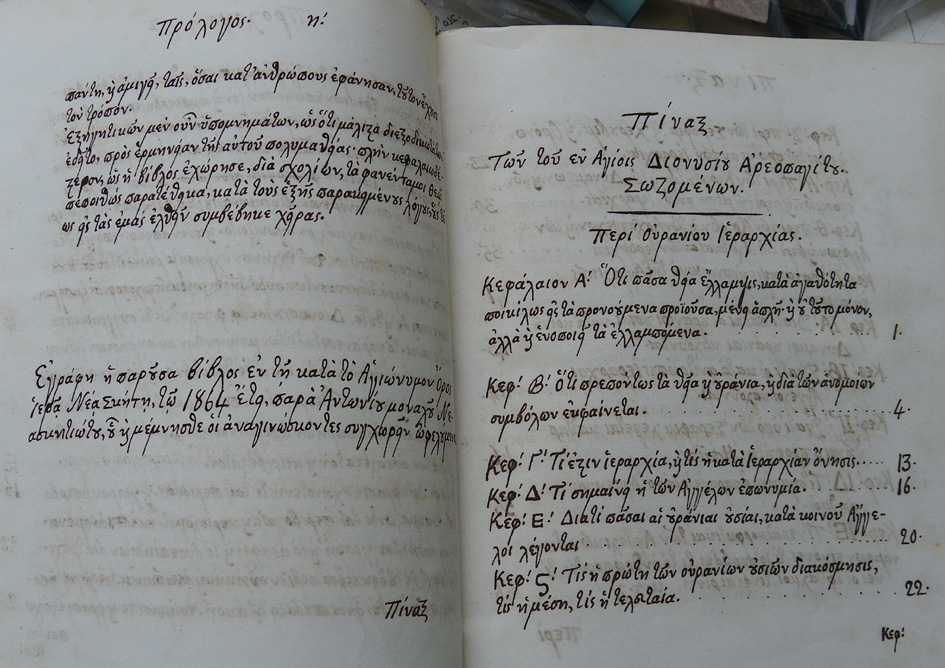 Πρόλογος. η!
πάντη, ἢ ἀμιγῆ, ταῖς, ὅσαι κατ' ἀνθρώπους ἐφάνησαν,
τὸν τρόπον.
Ἐξηγητικῶν μὲν οὖν ὑπομνημάτων, ὡς ὅτι μάλιστα
πρὸς ἑρμηνείαν τῆς αὐτοῦ πολυμαθείας· πλὴν
ὡς ἡ βίβλος ἐχώρησε, διὰ σχολίων, τὰ φανέντα μοι Θεῷ
πεποιθὼς παρατέθεικα, κατὰ τοὺς ἑξῆς παραγμένους λόγους,
ὡς εἰς τὰς ἐμὰς ἐλθεῖν συμβέβηκε χεῖρας.
Ἐγράφη ἡ παρούσα βίβλος ἐν τῇ κατὰ τὸ Ἁγιώνυμον Ὄρος
Ἱερᾷ Νέα Σκήτη, τῷ 1864 ἔτει, παρὰ Ἀντωνίου μοναχοῦ Νε-
ασκητιώτου, οὗ ἢ μέμνησθε οἱ ἀναγινώσκοντες συγχωρεῖν
Πίναξ
Πίναξ
Τῶν τοῦ ἐν Ἁγίοις Διονυσίου Ἀρεοπαγίτου.
Σωζομένων.
Περὶ Οὐρανίου Ἱεραρχίας.
Κεφάλαιον Α! Ὅτι πᾶσα θεία ἔλλαμψις, κατὰ ἀγαθότητα
ποικίλως εἰς τὰ προνοούμενα προϊοῦσα, μένει ἁπλῆ· ἢ οὐ τοῦτο μόνον,
ἀλλὰ ἢ ἑνοποιεῖ τὰ ἐλλαμπόμενα. 1.
Κεφ! Β! Ὅτι πρεπόντως τὰ θεῖα ἢ οὐράνια, ἢ διὰ τῶν ἀνομοίων
συμβόλων ἐμφαίνεται. 4.
Κεφ! Γ! Τί ἐστιν ἱεραρχία, ἢ τίς ἡ κατὰ Ἱεραρχίαν ὄνησις. 13.
Κεφ! Δ! Τί σημαίνει ἡ τῶν Ἀγγέλων ἐπωνυμία. 16.
Κεφ! Ε! Διατί πᾶσαι αἱ οὐράνιαι οὐσίαι, κατὰ κοινοῦ Ἄγγε-
λοι λέγονται 20.
Κεφ! Ϛ! Τίς ἡ πρώτη τῶν οὐρανίων οὐσιῶν διακόσμησις,
τίς ἡ μέση, τίς ἡ τελευταία. 22.
Κεφ!